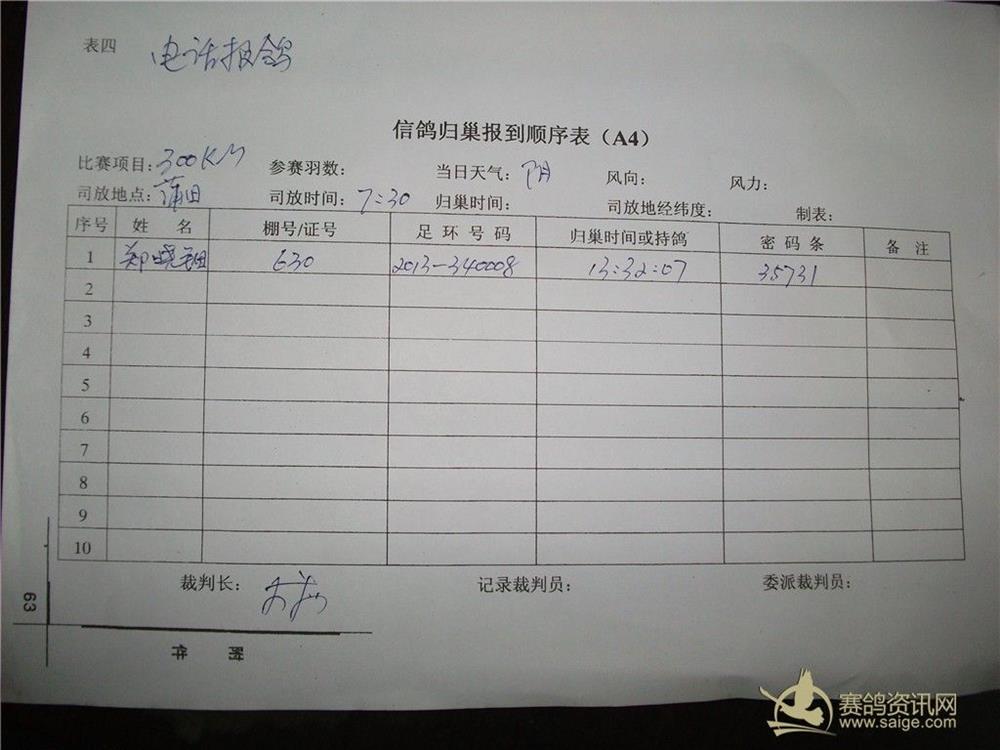 表四 电话报鸽
信鸽归巢报到顺序表（A4）
比赛项目：300KM 参赛羽数： 当日天气：阴 风向： 风力：
司放地点：莆田 司放时间：7：30 归巢时间： 司放地经纬度： 制表：
序号 姓 名 棚号/证号 足 环 号 码 归巢时间或持鸽 密 码 条 备 注
1 郑晓 630 2013-340008 13：32：07 35731
2
3
4
5
6
7
8
9
10
裁判长： 记录裁判员： 委派裁判员：
63
附 件
赛鸽资讯网
www.saige.com